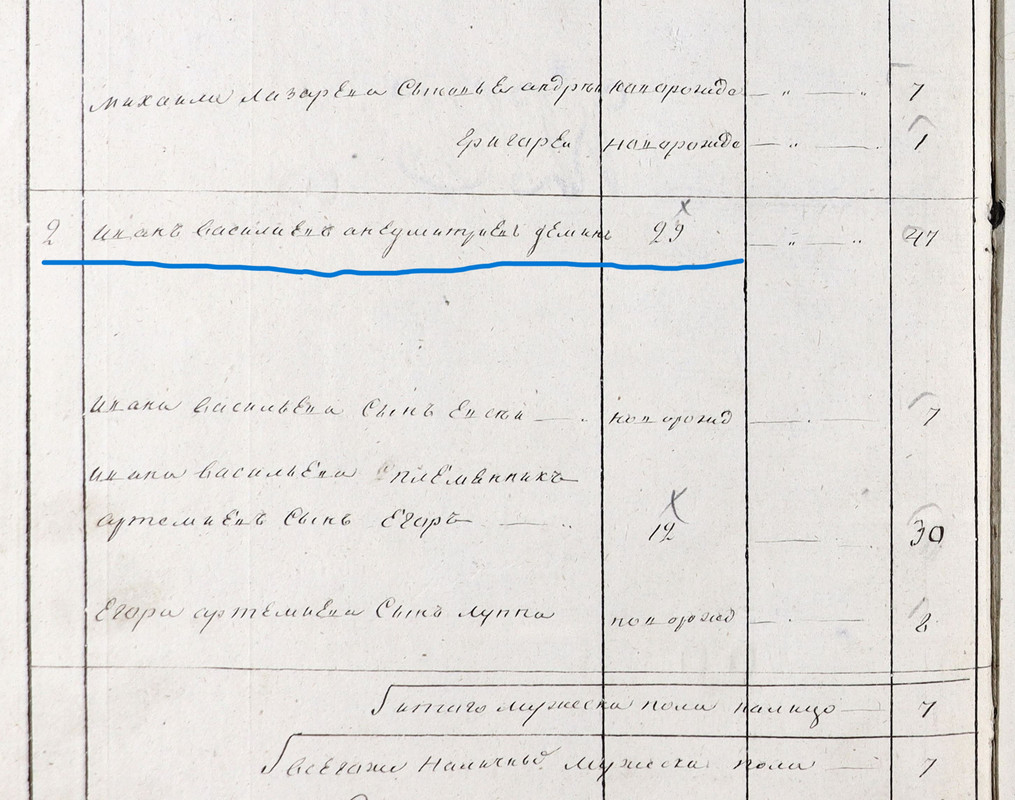 михаила Лазарева Сыновья андръи новорожде — " — " 7
григореи новорожде — " — 1
2 иванъ василиевъ демин 29 — " — " 47
ивана васильева Сынъ — новорожд — . — 7
ивана васильева племянникъ
артемиевъ Сынъ Егоръ — 12 — 30
Егора артемиева Сынъ луппа новорожд — . — 2
итого мужеска пола налицо — 7
всегоже Наличных мужеска пола — 7